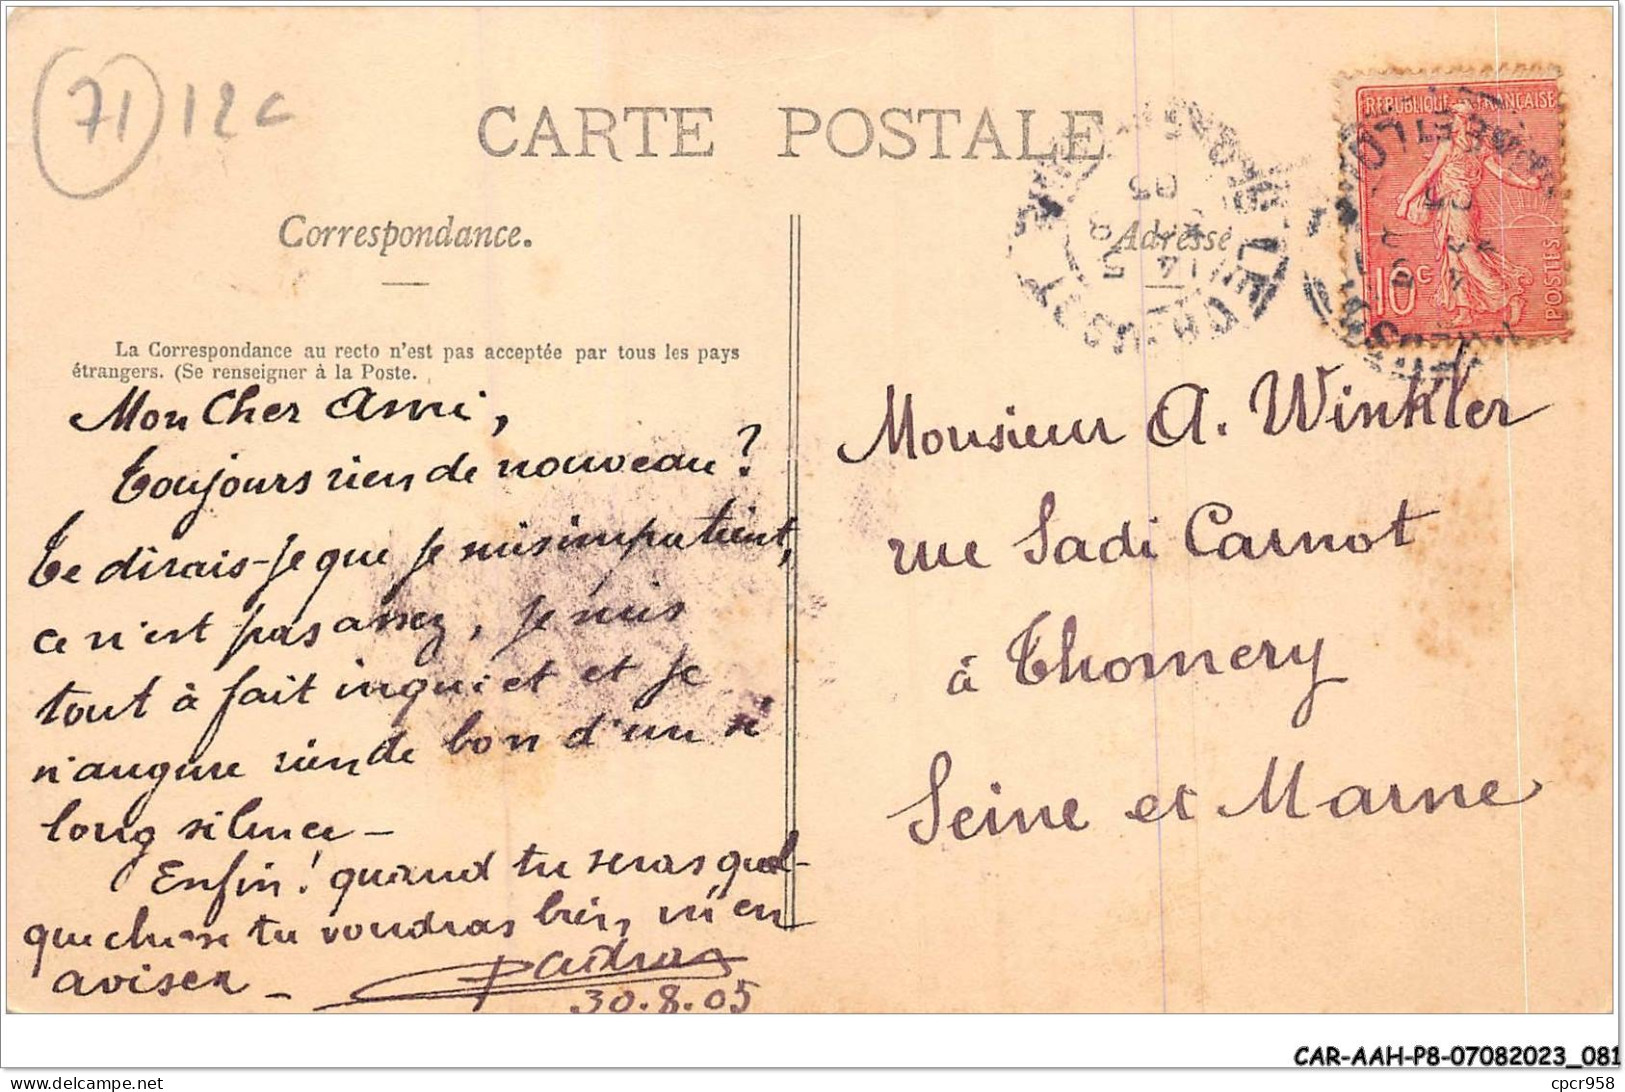 71 12 c
CARTE POSTALE
Correspondance.
Adresse
REPUBLIQUE FRANÇAISE
10c
POSTES
LE CREUSOT
05
La Correspondance au recto n'est pas acceptée par tous les pays
étrangers. (Se renseigner à la Poste.
Mon Cher Ami,
Toujours rien de nouveau?
Te dirais-je que je suis impatient,
ce n'est pas assez, je suis
tout à fait inquiet et je
n'augure rien de bon d'un si
long silence -
Enfin! quand tu seras quel-
que chose tu voudras bien m'en
aviser -
30.8.05
Monsieur A. Winkler
rue Sadi Carnot
à Thomery
Seine et Marne
CAR-AAH-P8-07082023_081
delcampe.net
cpcr958